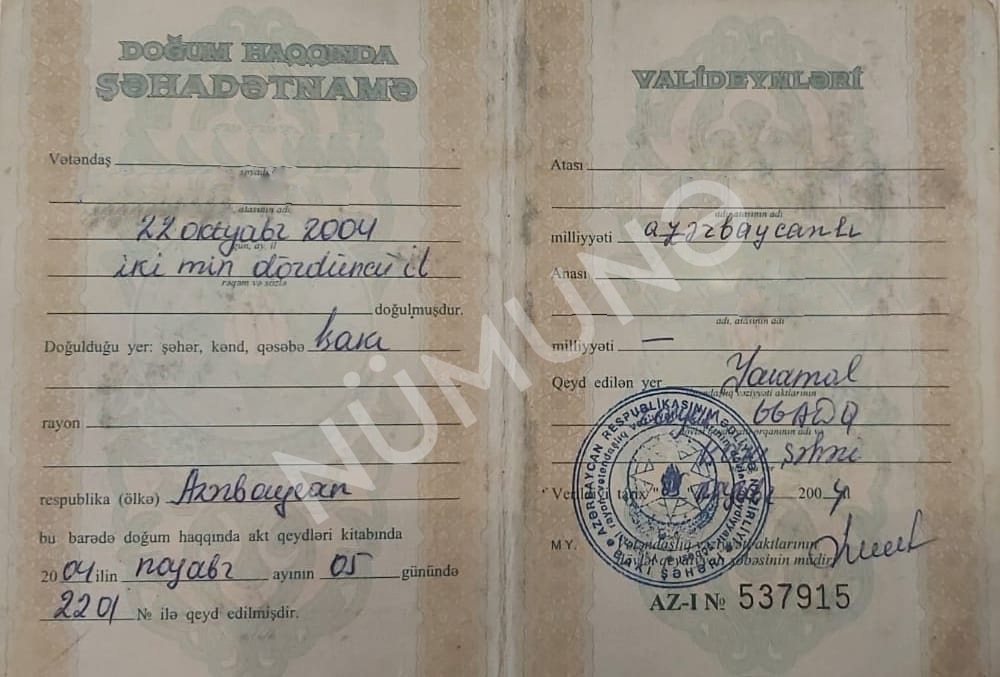 DOĞUM HAQQINDA
ŞƏHADƏTNAMƏ
Vətəndaş
soyadı
atasının adı
22 oktyabr 2004
gün, ay, il
iki min dördüncü il
rəqəm və sözlə
doğulmuşdur.
Doğulduğu yer: şəhər, kənd, qəsəbə Bakı
rayon
respublika (ölkə) Azərbaycan
bu barədə doğum haqqında akt qeydləri kitabında
2004 ilin noyabr ayının 05 günündə
2201 № ilə qeyd edilmişdir.
VALİDEYNLƏRİ
Atası
adı, atasının adı
milliyyəti azərbaycanlı
Anası
adı, atasının adı
milliyyəti —
Qeyd edilən yer Yasamal
vəziyyəti aktlarının
orqanının adı və
şəhəri
tarix " noyabr 2004
M Y. Vətəndaşlıq vəziyyəti aktlarının
dövlət qeydiyyatı şöbəsinin müdiri
AZƏRBAYCAN RESPUBLİKASININ ƏDLİYYƏ NAZİRLİYİ
AZ-I № 537915
NÜMUNƏ